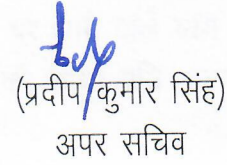 (प्रदीप कुमार सिंह)
अपर सचिव